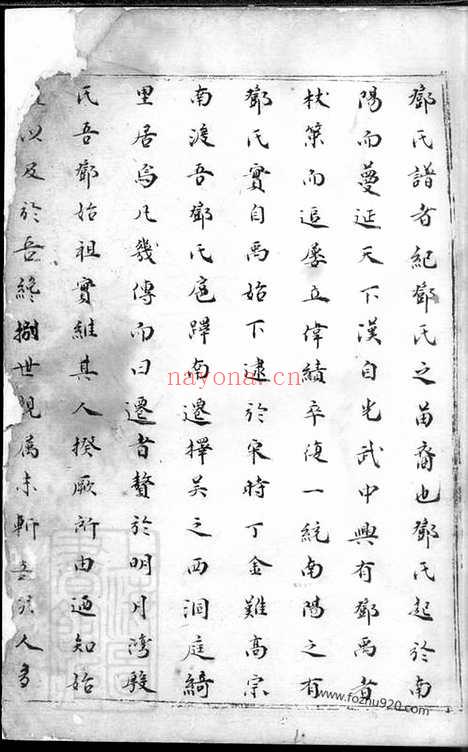 鄧氏譜者紀鄧氏之苗裔也鄧氏起於南
陽而蔓延天下漢自光武中興有鄧禹者
杖策而追屡立偉績卒復一統南陽之有
鄧氏實自禹始下逮於宋時丁金難高宗
南渡吾鄧氏扈蹕南遷擇吴之西洞庭綺
里居焉凡幾傳而曰遷者贅於明月灣殷
氏吾鄧始祖實維其人揆厥所由迺知始
以及於吾終捌世現属未斬
人
nayona.cn
www.fozhu920.com